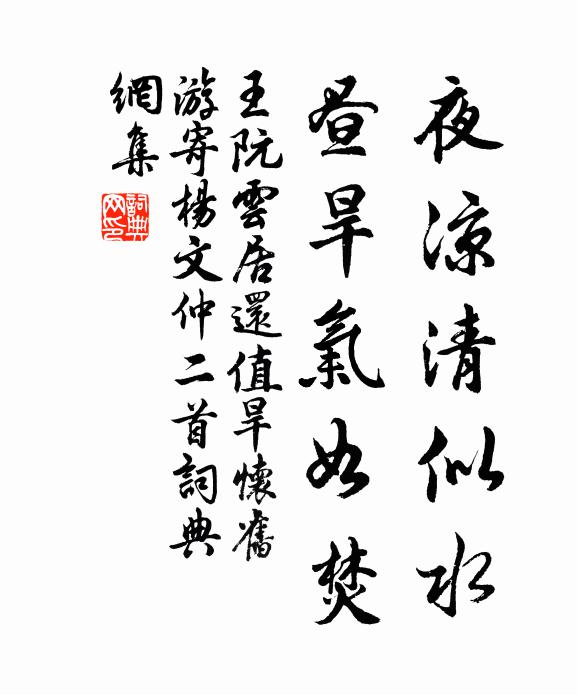 夜涼清似水
昼旱氣如焚
王阮雲居還值旱懷舊
游寄楊文仲二首詞典
網集
詞典
网印